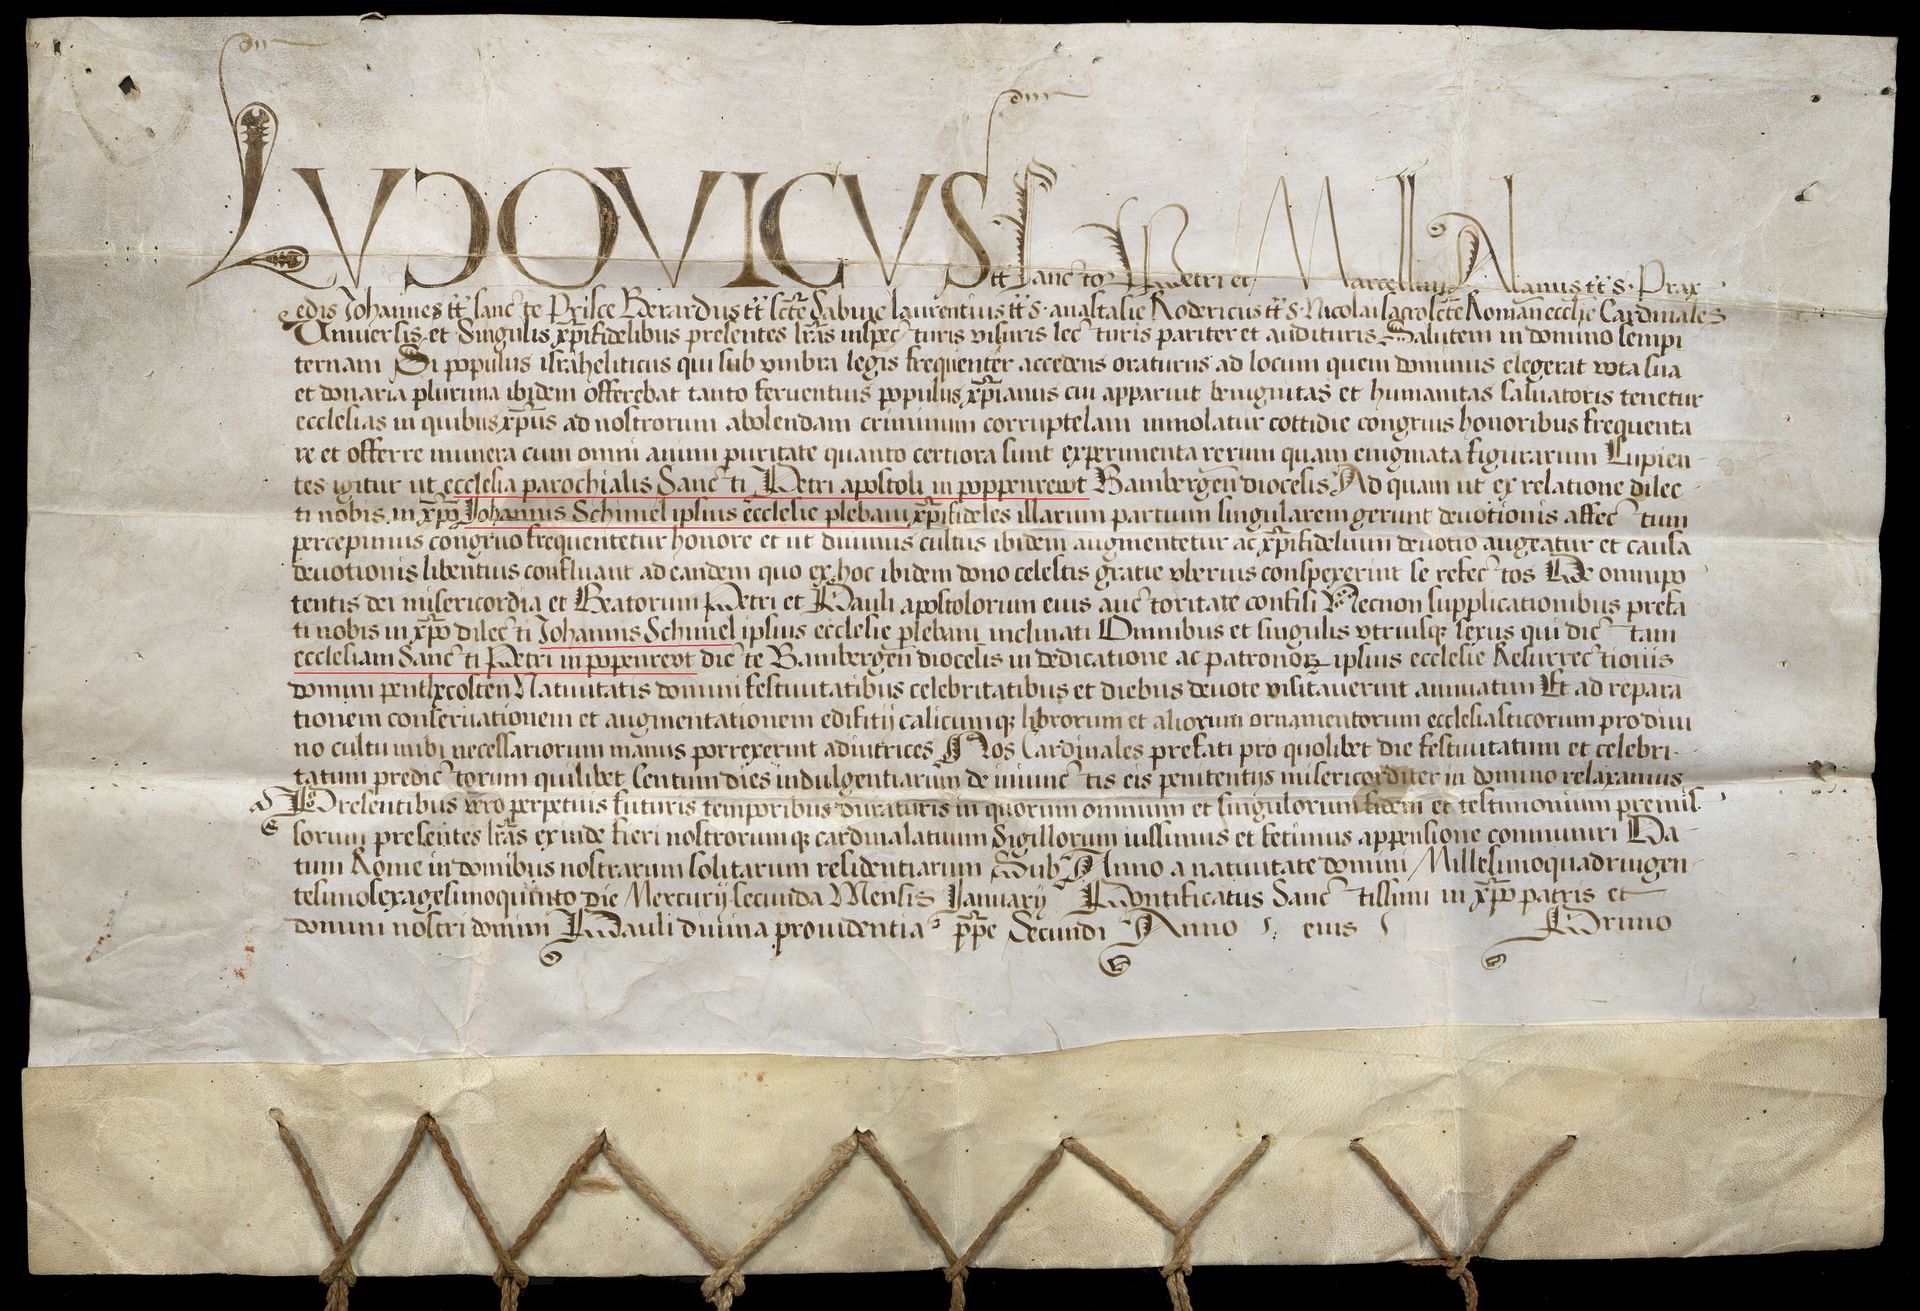 LUDOVICUS tt Sanctor Petri et Marcellini Alanus tt s. Prax
edis Johannes tt sancte Prisce Berardus tt scte Sabine laurentius tt s. anastasie Rodericus tt s. Nicolai sacroscte Roman ecclie Cardinales
Universis et Singulis xpifidelibus presentes lras inspecturis visuris lecturis pariter et audituris Salutem in domino sempi
ternam Si populus israheliticus qui sub umbra legis frequenter accedens oraturus ad locum quem dominus elegerat vota sua
et donaria plurima ibidem offerebat tanto ferventius populus xpianus cui apparuit benignitas et humanitas salvatoris tenetur
ecclesias in quibus xpus ad nostrorum abolendam criminum corruptelam immolatur cottidie congruis honoribus frequenta
re et offerre munera cum omni animi puritate quanto certiora sunt experimenta rerum quam enigmata figurarum Cupien
tes igitur ut ecclesia parochialis Sancti Petri apostoli in poppenrewt Bambergen diocesis Ad quam ut ex relatione dilec
ti nobis in xpo Johannis Schimel ipsius ecclesie plebani xpifideles illarum partium singularem gerunt devotionis affectum
percepimus congruo frequentetur honore et ut divinus cultus ibidem augmentetur ac xpifidelium devotio augeatur et causa
devotionis libentius confluant ad eandem quo ex hoc ibidem dono celestis gratie uberius conspexerint se refectos De omnipo
tentis dei misericordia et Beatorum Petri et Pauli apostolorum eius auctoritate confisi Necnon supplicationibus prefa
ti nobis in xpo dilecti Johannis Schimel ipsius ecclesie plebani inclinati Omnibus et singulis utriusq sexus qui dictam
ecclesiam Sancti Petri in popenrewt dicte Bambergen diocesis in dedicatione ac patronor ipsius ecclesie Resurrectionis
domini penthecosten Nativitatis domini festivitatibus celebritatibus et diebus devote visitaverint annuatim Et ad repara
tionem conservationem et augmentationem edifitij calicumq librorum et aliorum ornamentorum ecclesiasticorum pro divi
no cultu inibi necessariorum manus porrexerint adiutrices Nos Cardinales prefati pro quolibet die festivitatum et celebri
tatum predictorum quilibet Centum dies indulgentiarum de iniunctis eis penitentijs misericorditer in domino relaxamus
Presentibus vero perpetuis futuris temporibus duraturis in quorum omnium et singulorum fidem et testimonium premis
sorum presentes lras exinde fieri nostrorumq cardinalatuum Sigillorum iussimus et fecimus appensione communiri Da
tum Rome in domibus nostrarum solitarum residentiarum Sub Anno a nativitate domini Millesimoquadringen
tesimosexagesimoquinto die Mercurij secunda Mensis Januarij Pontificatus Sanctissimi in xpo patris et
domini nostri domini Pauli divina providentia ppe Secundi Anno eius Primo